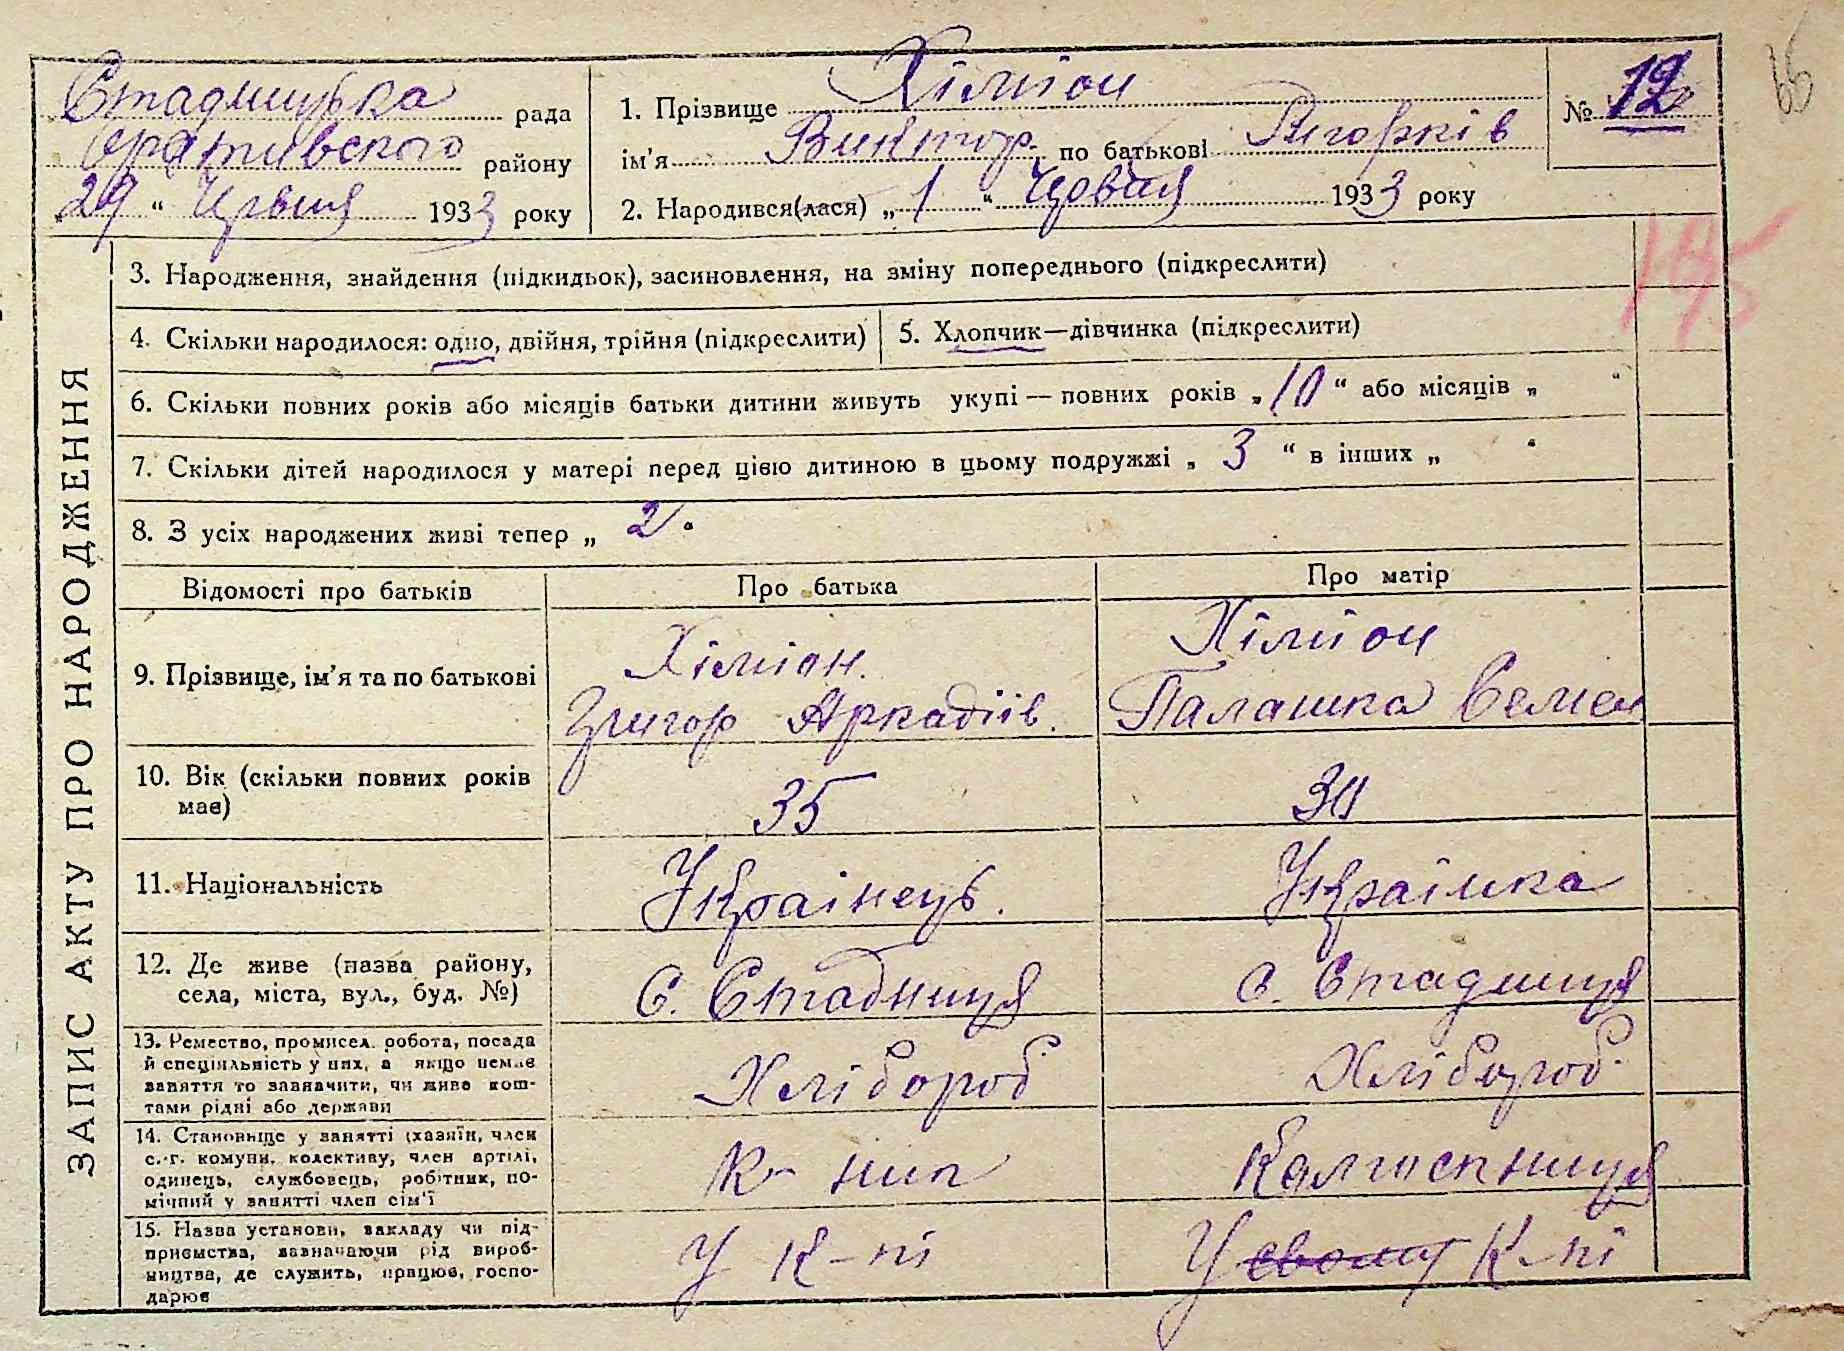 Стадницька рада
Оратівського району
"29" Червня 1933 року
1. Прізвище Хіміон
ім'я Виктор, по батькові Григорків
№ 12
2. Народився(лася) „1" Червня 1933 року
145
ЗАПИС АКТУ ПРО НАРОДЖЕННЯ
3. Народження, знайдення (підкидьок), засиновлення, на зміну попереднього (підкреслити)
4. Скільки народилося: одно, двійня, трійня (підкреслити)
5. Хлопчик—дівчинка (підкреслити)
6. Скільки повних років або місяців батьки дитини живуть укупі — повних років „10" або місяців „ "
7. Скільки дітей народилося у матері перед цією дитиною в цьому подружжі „3" в інших „ "
8. З усіх народжених живі тепер „2"
Відомості про батьків
Про батька
Про матір
9. Прізвище, ім'я та по батькові
Хіміон.
Григор Аркадіїв.
Хіміон
Палашка Семен
10. Вік (скільки повних років
має)
35
30
11. Національність
Українець.
Українка
12. Де живе (назва району,
села, міста, вул., буд. №)
С. Стадниця
С. Стадниця
13. Ремество, промисел. робота, посада
й спеціяльність у них, а якщо немає
заняття то зазначити, чи живе кош-
тами рідні або держави
Хлібороб
Хлібороб.
14. Становище у занятті (хазяїн, член
с.-г. комуни, колективу, член артілі,
одинець, службовець, робітник, по-
мічний у занятті член сім'ї
К-ник
Колгоспниця
15. Назва установи, закладу чи під-
приємства, зазначаючи рід вироб-
ництва, де служить, працює, госпо-
дарює
У К-пі
У своему К-пі